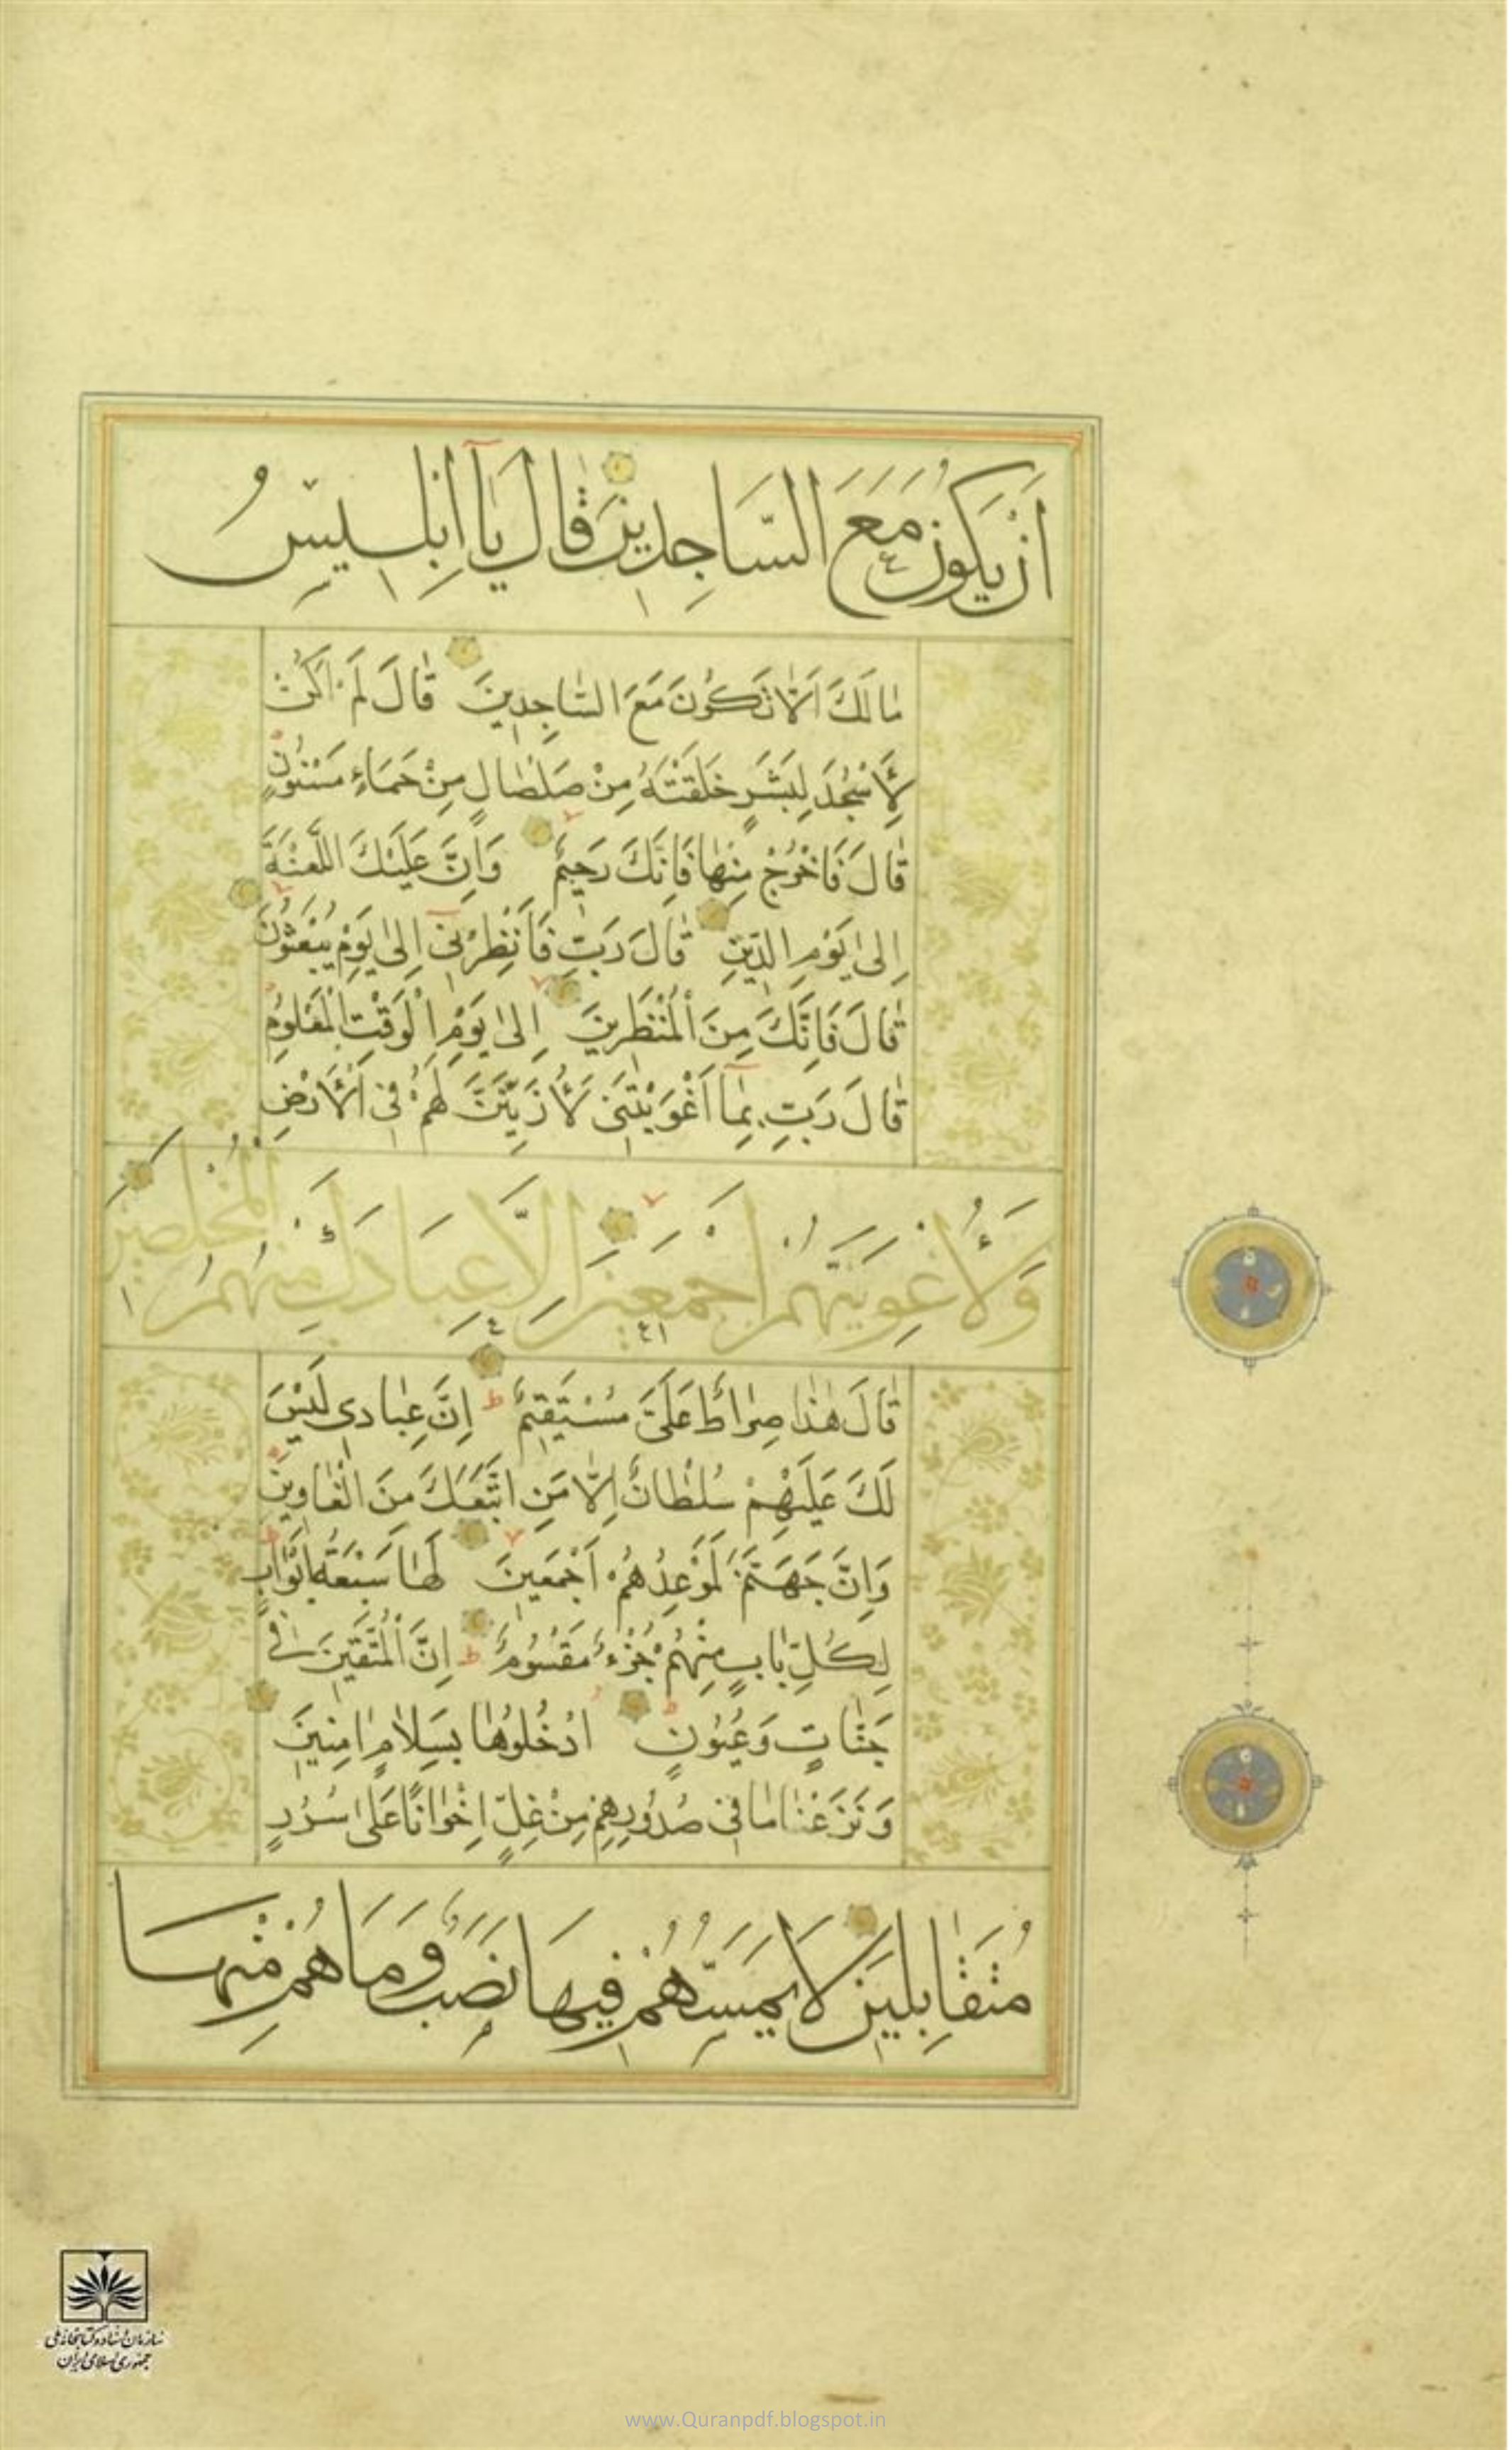 اَنْ يَكُونَ مَعَ السَّاجِدِينَ قَالَ يَآ اِبْلِيسُ
مٰا لَكَ اَلّٰا تَكُونَ مَعَ السّٰاجِدِينَ قٰالَ لَمْ اَكُنْ
لِأَسْجُدَ لِبَشَرٍ خَلَقْتَهُ مِنْ صَلْصٰالٍ مِنْ حَمَاءٍ مَسْنُونٍ
قٰالَ فَاخْرُجْ مِنْهٰا فَاِنَّكَ رَجِيمٌ وَاِنَّ عَلَيْكَ اللَّعْنَةَ
اِلىٰ يَوْمِ الدِّينِ قٰالَ رَبِّ فَأَنْظِرْنِى اِلىٰ يَوْمِ يُبْعَثُونَ
قٰالَ فَاِنَّكَ مِنَ الْمُنْظَرِينَ اِلىٰ يَوْمِ الْوَقْتِ الْمَعْلُومِ
قٰالَ رَبِّ بِمٰا اَغْوَيْتَنِى لَأُزَيِّنَنَّ لَهُمْ فِى الْأَرْضِ
وَلَأُغْوِيَنَّهُمْ اَجْمَعِينَ اِلَّا عِبَادَكَ مِنْهُمُ الْمُخْلَصِينَ
قٰالَ هٰذٰا صِرٰاطٌ عَلَىَّ مُسْتَقِيمٌ اِنَّ عِبٰادِى لَيْسَ
لَكَ عَلَيْهِمْ سُلْطٰانٌ اِلّٰا مَنِ اتَّبَعَكَ مِنَ الْغٰاوِينَ
وَاِنَّ جَهَنَّمَ لَمَوْعِدُهُمْ اَجْمَعِينَ لَهٰا سَبْعَةُ اَبْوٰابٍ
لِكُلِّ بٰابٍ مِنْهُمْ جُزْءٌ مَقْسُومٌ اِنَّ الْمُتَّقِينَ فِى
جَنّٰاتٍ وَعُيُونٍ ادْخُلُوهٰا بِسَلاٰمٍ اٰمِنِينَ
وَنَزَعْنٰا مٰا فِى صُدُورِهِمْ مِنْ غِلٍّ اِخْوٰانًا عَلىٰ سُرُرٍ
مُتَقٰابِلِينَ لَا يَمَسُّهُمْ فِيهَا نَصَبٌ وَمَا هُمْ مِنْهَا
سازمان اسناد و کتابخانه ملی
جمهوری اسلامی ایران
www.Quranpdf.blogspot.in